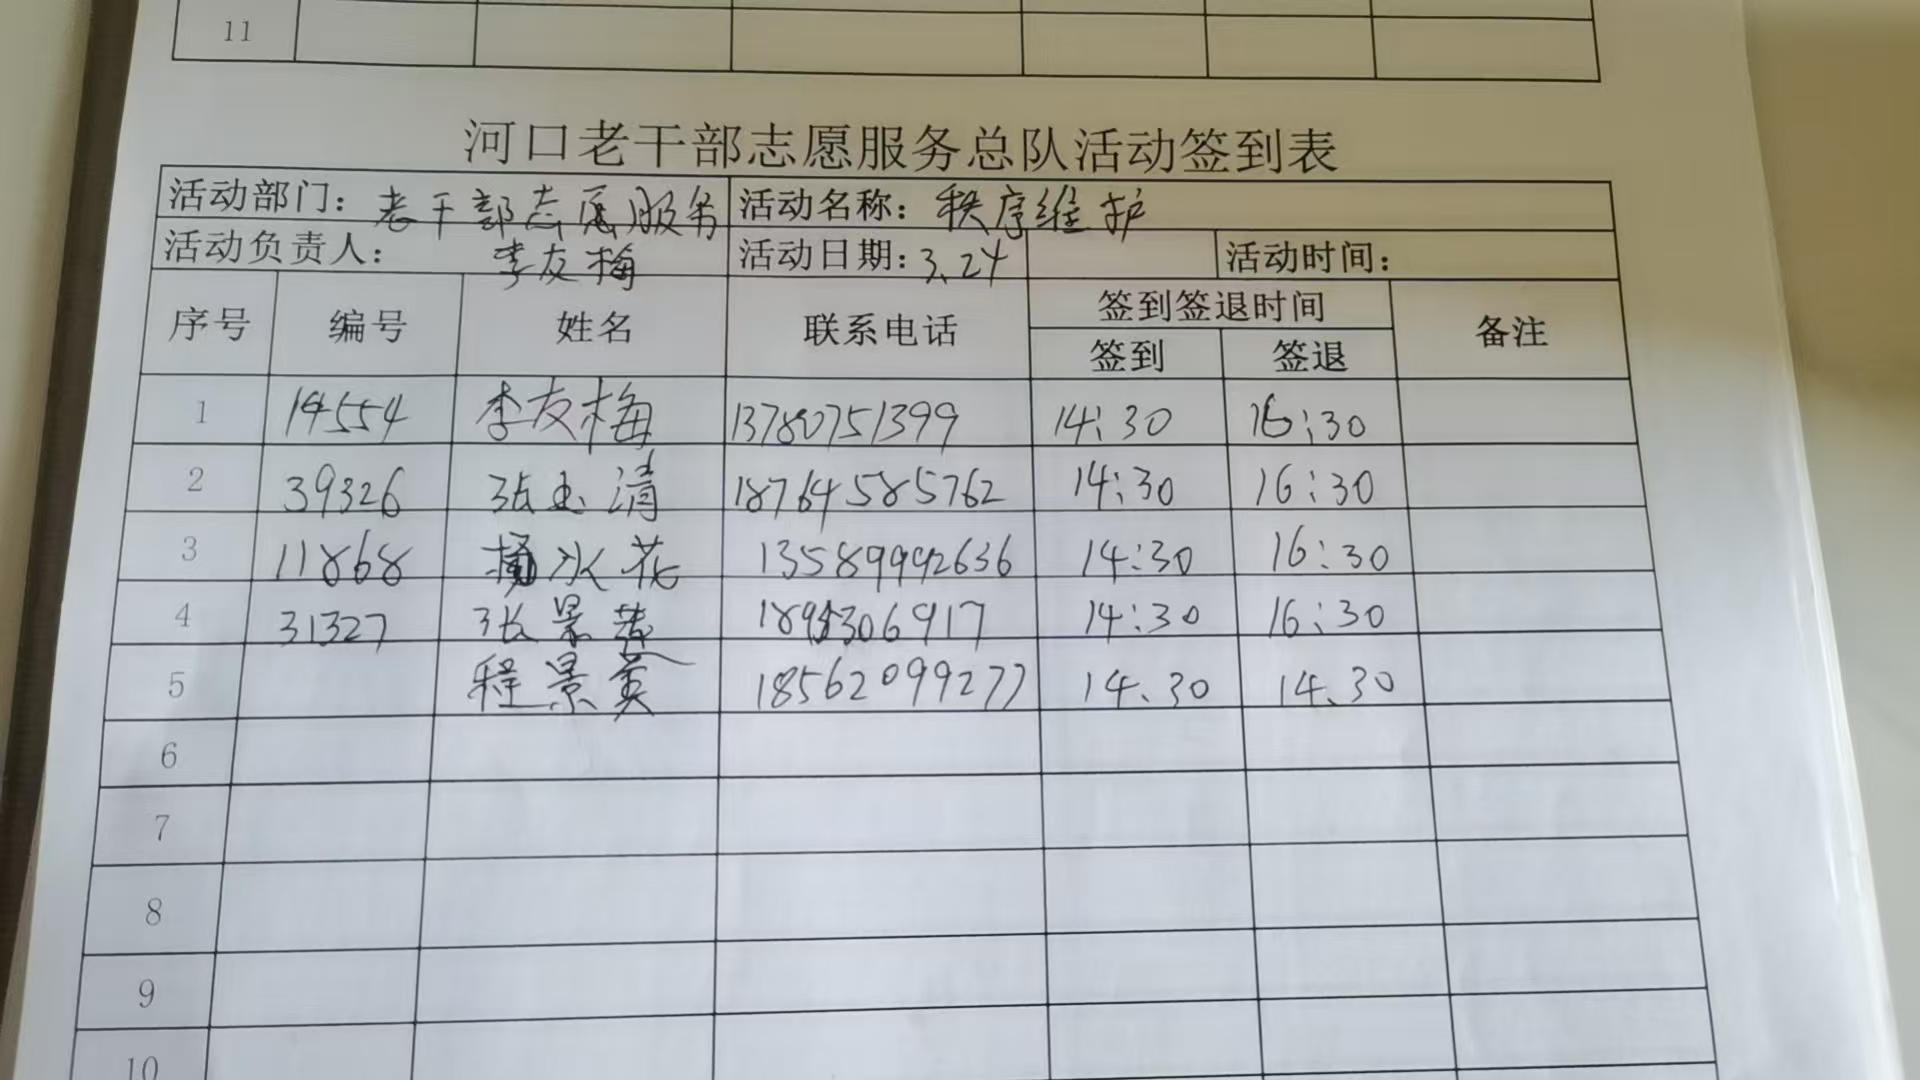 11
河口老干部志愿服务总队活动签到表
活动部门：老干部志愿服务 活动名称：秩序维护
活动负责人：李友梅 活动日期：3.24 活动时间：
序号 编号 姓名 联系电话 签到签退时间 备注
签到 签退
1 14554 李友梅 13780751399 14:30 16:30
2 39326 张玉清 18764585762 14:30 16:30
3 11868 冰花 13589992636 14:30 16:30
4 31327 张景 14:30 16:30
5 程景英 18562099277 14.30 14.30
6
7
8
9
10